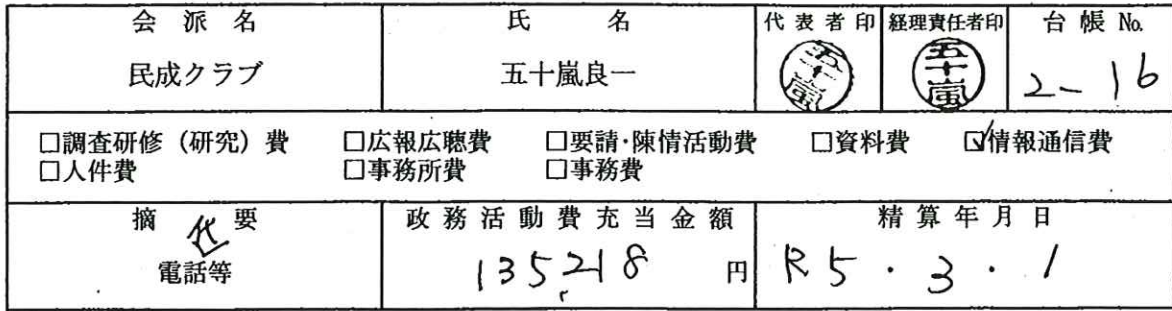 会派名 氏名 代表者印 経理責任者印 台帳No.
民成クラブ 五十嵐良一 五十嵐 五十嵐 2-16
□調査研修（研究）費 □広報広聴費 □要請・陳情活動費 □資料費 ☑情報通信費
□人件費 □事務所費 □事務費
摘要 政務活動費充当金額 精算年月日
代
電話等 135,218 円 R5・3・1